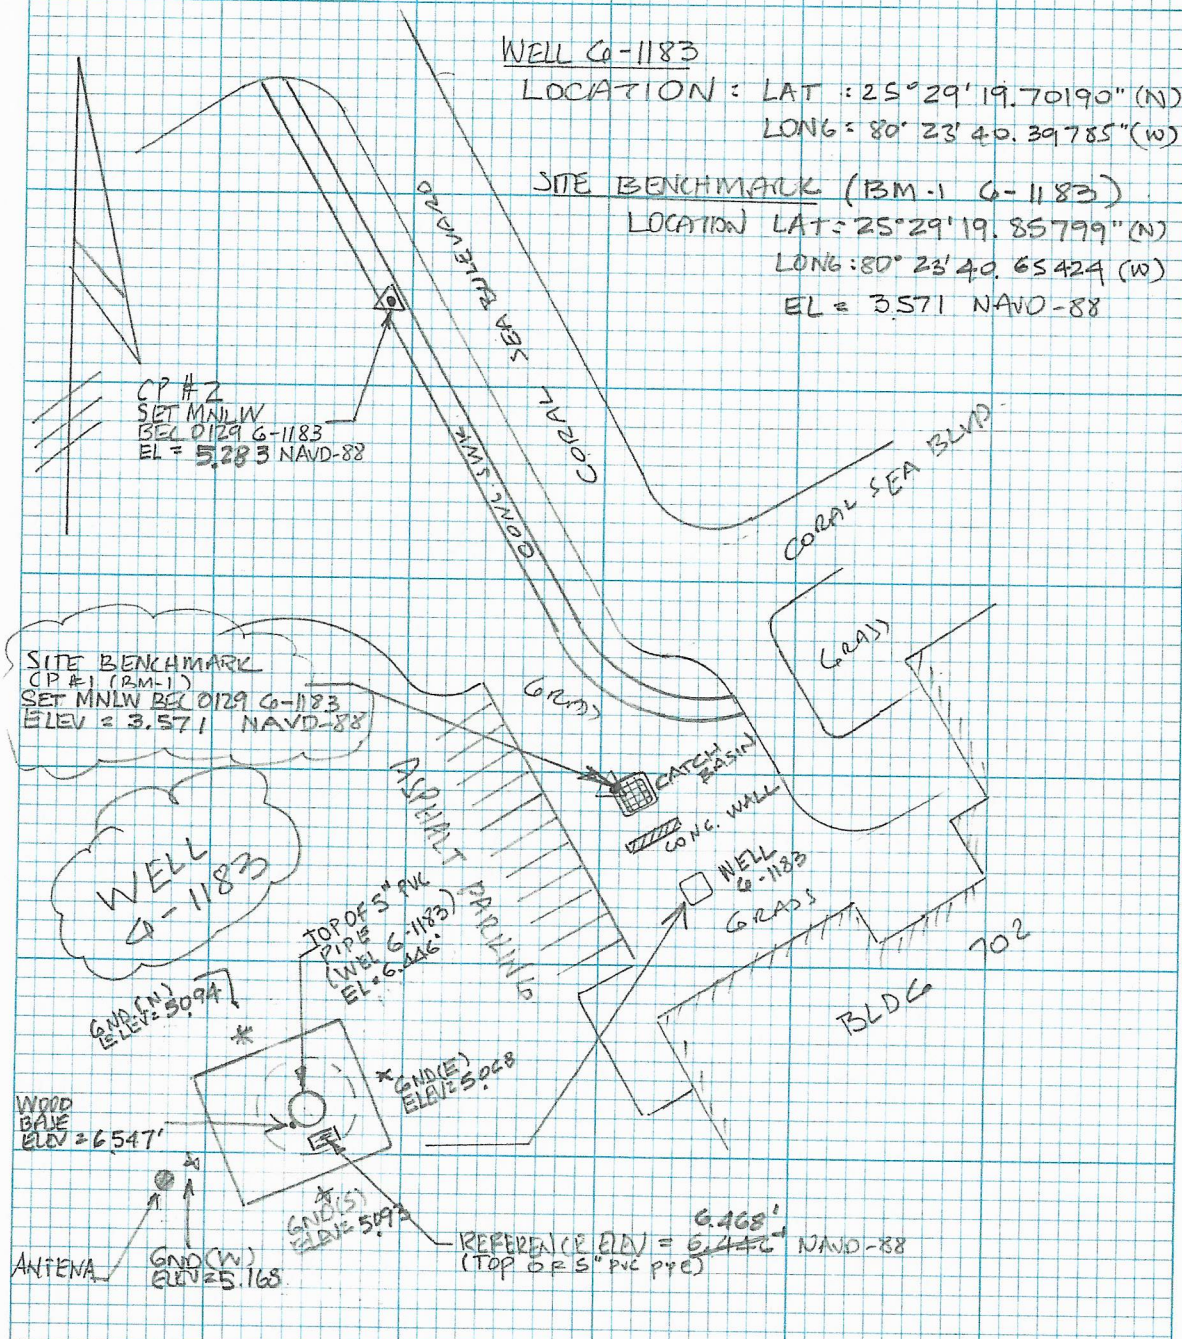 WELL G-1183
LOCATION : LAT : 25° 29' 19.70190" (N)
LONG : 80° 23' 40.39785" (W)
SITE BENCHMARK (BM-1 G-1183)
LOCATION LAT: 25°29'19.85799" (N)
LONG : 80° 23' 40.65424 (W)
EL = 3.571 NAVD-88
CORAL SEA BULEVARD
CP #2
SET MNLW
BEC 0129 G-1183
EL = 5.283 NAVD-88
CONC. SWK
CORAL SEA BLVD
GRASS
SITE BENCHMARK
CP #1 (BM-1)
SET MNLW BEC 0129 G-1183
ELEV = 3.571 NAVD-88
GRASS
CATCH
BASIN
CONC. WALL
ASPHALT PARKING
WELL
G-1183
WELL
G-1183
GRASS
BLDG 702
TOP OF 5" PVC
PIPE
(WEL G-1183)
EL = 6.446'
GND (N)
ELEV = 5.094
GND (E)
ELEV = 5.068
WOOD
BASE
ELEV = 6.547'
GND (S)
ELEV = 5.093
ANTENA
GND (W)
ELEV = 5.168
6.468'
REFERENCE ELEV = 6.446' NAVD-88
(TOP OF 5" PVC PIPE)